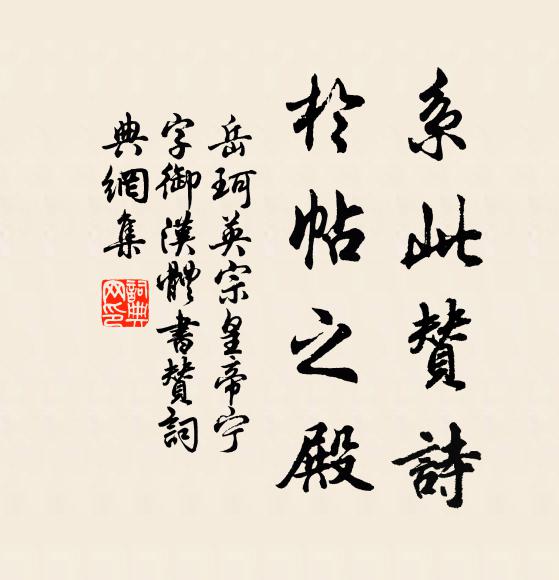 系此贊詩
於帖之殿
岳珂英宗皇帝宁
字御漢體書贊詞
典網集
詞典网印